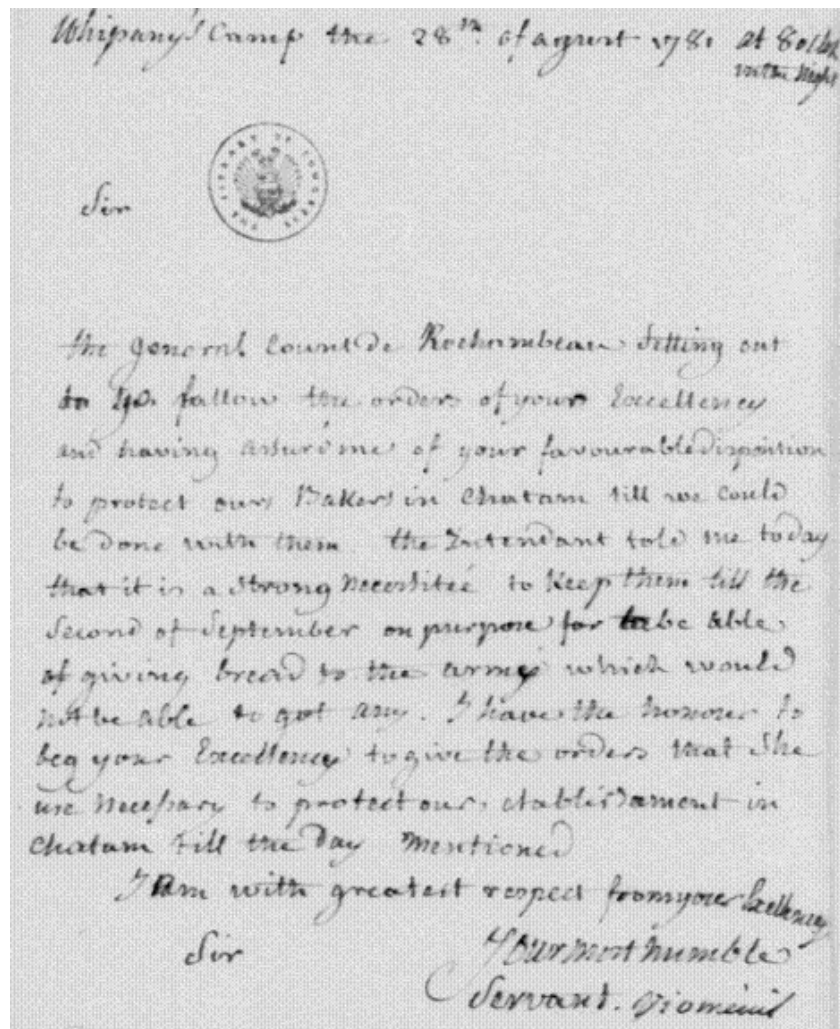 Whipany's Camp the 28th of agust 1781 at 8 o'clok
in the Night
THE LIBRARY OF CONGRESS
Sir
the general Count de Rochambeau Setting out
to go. fallow the orders of your Excellency
and having assur'd me of your favourable disposition
to protect ours Bakers in Chatam till we could
be done with them. the Intendant told me today
that it is a strong Necessiteé to Keep them till the
Second of September on purpose for to be able
of giving bread to the army which would
not be able to got any. I have the honour to
beg your Excellency to give the orders that She
use Necessary to protect our, etablishament in
Chatam till the Day Mentioned
I am with greatest respect from your Excellency
Sir Your most humble
Servant. Viomenil